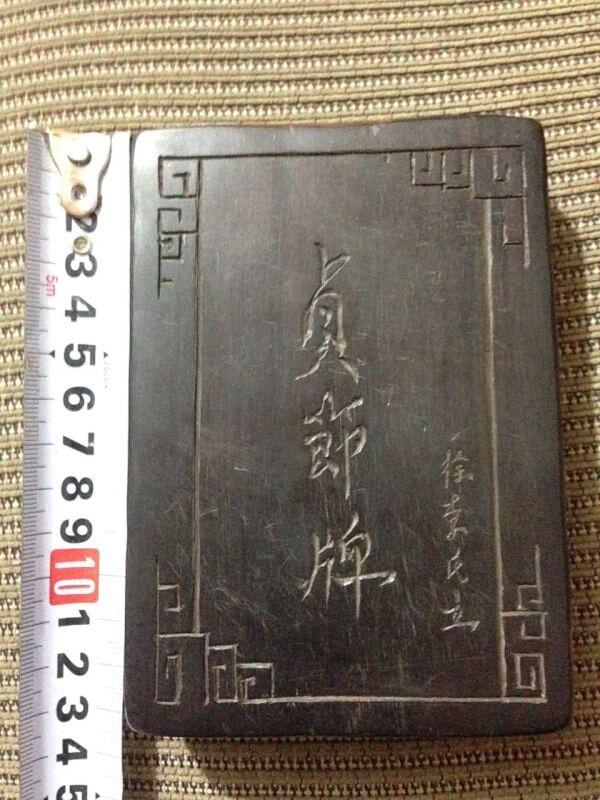 貞節牌
徐李氏立
5m
2
3
4
5
6
7
8
9
10
1
2
3
4
5